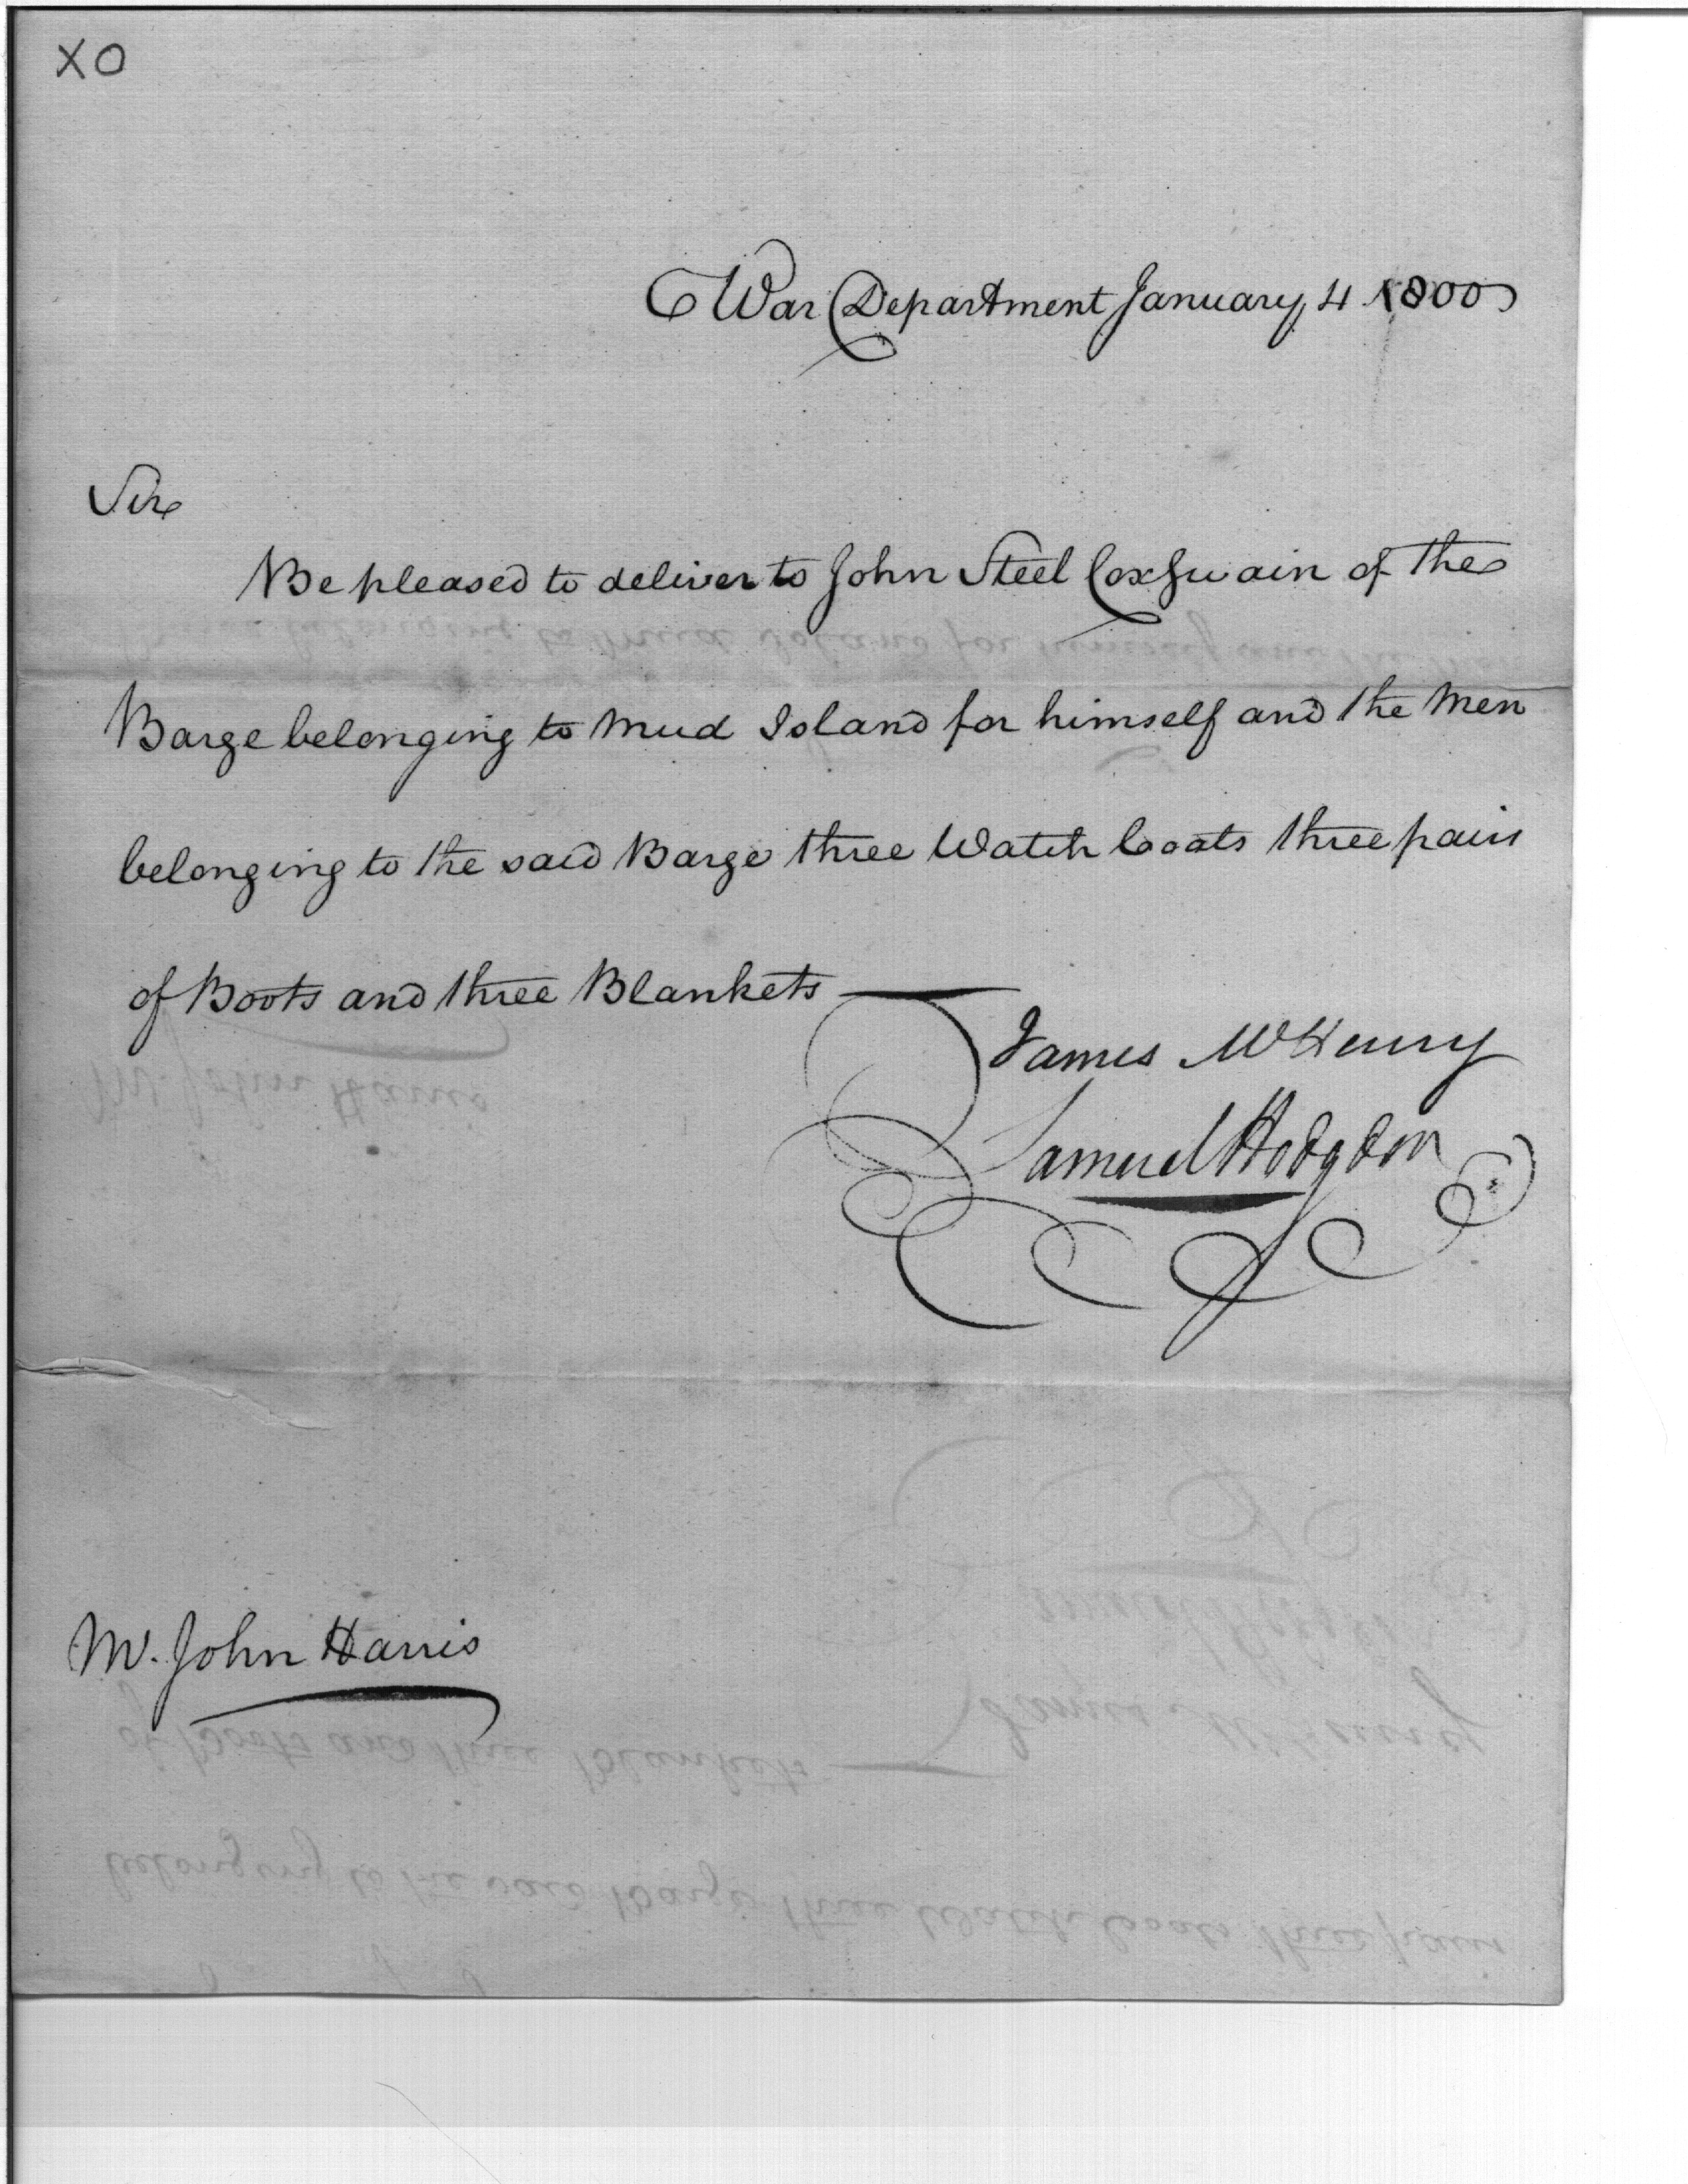 XO
War Department January 4 1800
Sir
Be pleased to deliver to John Steel Coxswain of the
Barge belonging to Mud Island for himself and the Men
belonging to the said Barge three Watch Coats three pairs
of Boots and three Blankets
James McHenry
Samuel Hodgdon
Mr. John Harris